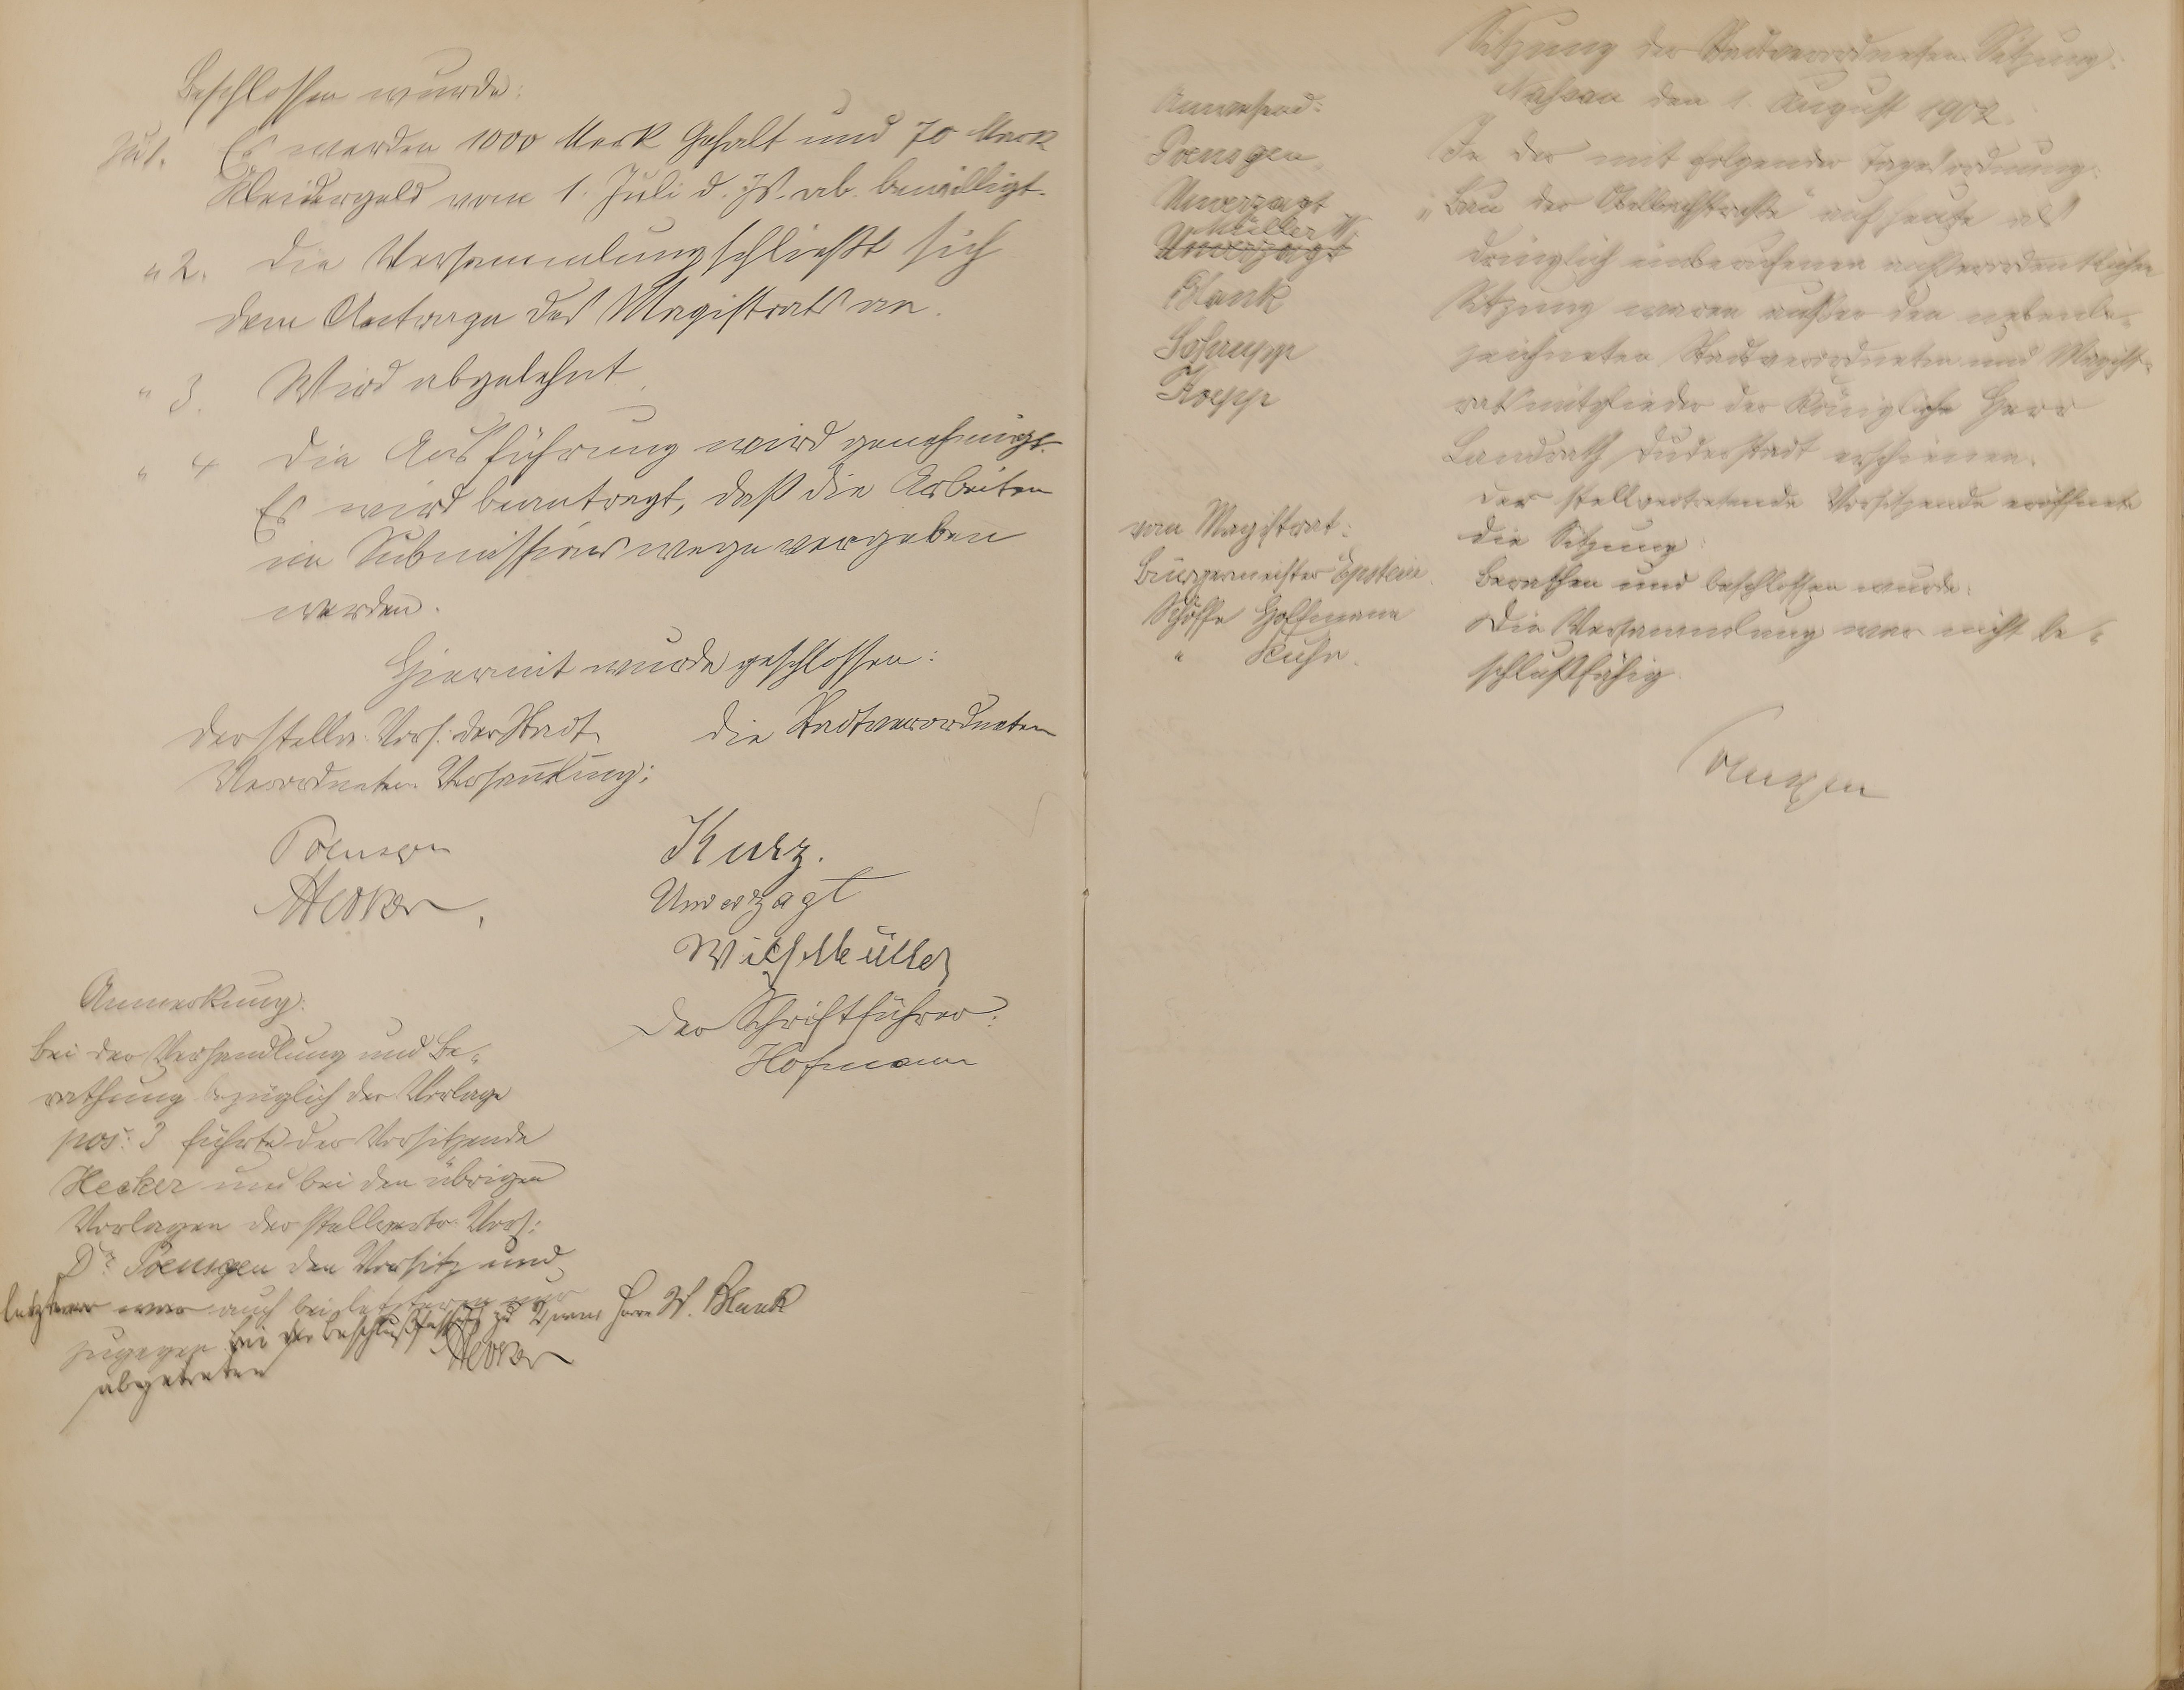 Beschlossen wurde:
Zu 1. Es werden 1000 Mark Gehalt und 70 Mark
Kleidergeld vom 1. Juli d. Js. ab bewilligt.
" 2. Die Versammlung schließt sich
dem Antrage des Magistrats an.
" 3. Wird abgelehnt.
" 4 Die Ausführung wird genehmigt.
Es wird beantragt, daß die Arbeiten
im Submissionswege vergeben
werden.
Hiermit wurde geschlossen:
Der stellv. Vors. der Stadt
Verordneten Versammlung:
Poensgen
Hecker.
Die Stadtverordneten
Kurz.
Unverzagt
Wilh. Müller
Der Schriftführer:
Hofmann
Anmerkung:
Bei der Verhandlung und Be-
rathung bezüglich der Vorlage
pos. 3 führte der Vorsitzende
Hecker und bei den übrigen
Vorlagen der stellvertr. Vors:
Dr. Poensgen den Vorsitz und
letzterer war auch bei letzteren nur
zugegen bei der Beschlußfassung zu Herr W. Blank
abgetreten
Hecker
Sitzung der Stadtverordneten Sitzung:
Nassau den 1. August 1902.
Anwesend:
Poensgen
Unverzagt
Müller W.
Unverzagt
Blank
Schrupp
Koepp
vom Magistrat:
Bürgermeister Epstein
Schöffe Hoffmann
" Kuhn.
In der mit folgender Tagesordnung:
"Bau der Oelbachstraße" auf heute als
dringlich einberufenen außerordentlichen
Sitzung waren außer den nebenbe-
zeichneten Stadtverordneten und Magist-
ratsmitglieder der Königliche Herr
Landrath Duderstadt erschienen.
Der stellvertretende Vorsitzende eröffnete
die Sitzung:
Berathen und beschlossen wurde:
Die Versammlung war nicht be-
schlußfähig.
Poensgen